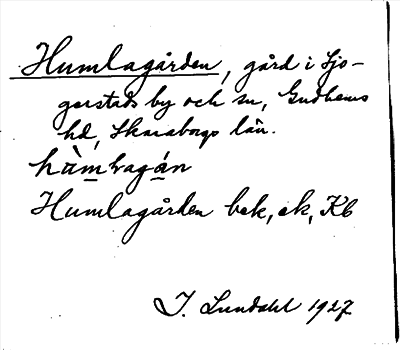 Humlagården, gård i Sjo-
gerstads by och sn, Gudhems
hd, Skaraborgs län.
hùmlragán
Humlagården bek, ek, Kb
I. Lundahl 1927